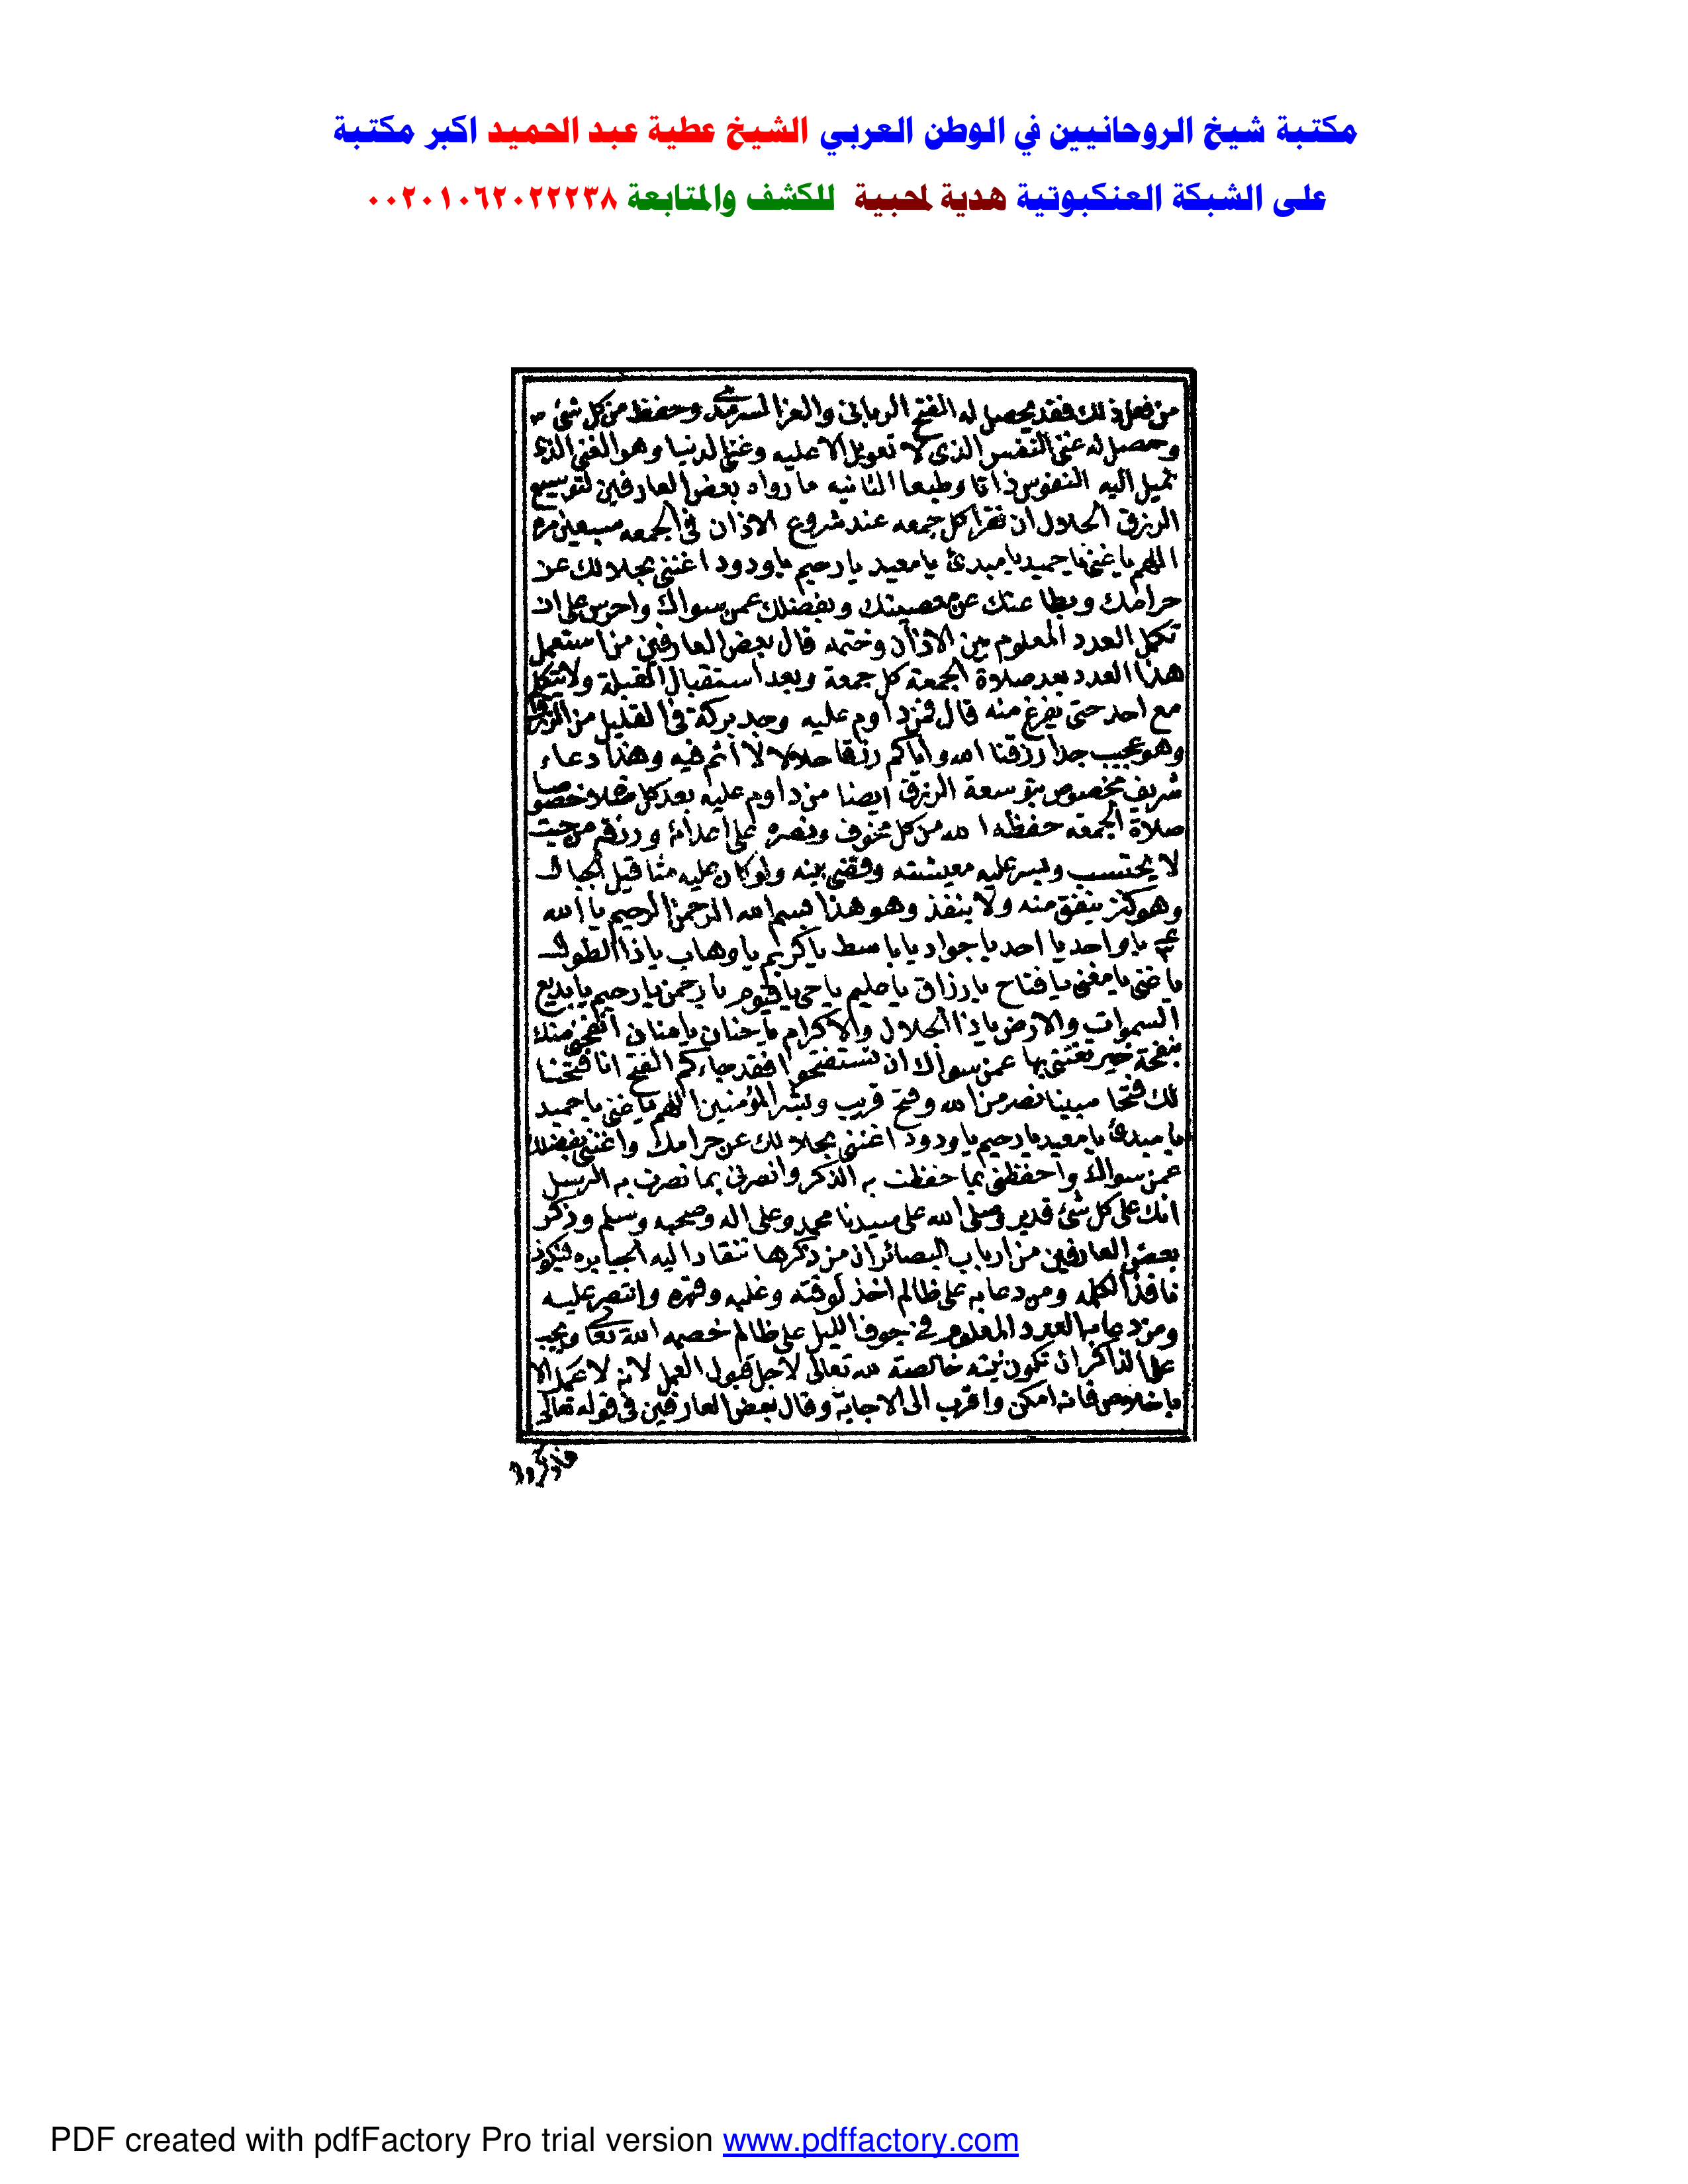 مكتبة شيخ الروحانيين في الوطن العربي الشيخ عطية عبد الحميد اكبر مكتبة
على الشبكة العنكبوتية هدية لمحبية للكشف والمتابعة ٠٠٢٠١٠٦٢٠٢٢٢٣٨
من فعل ذلك فقد يحصل له الفتح الربانى والعز السرمدى وحفظ من كل شئ
وحصل له غنى النفس الذى لا تعويل الا عليه وغنى الدنيا وهو الغنى الذى
تميل اليه النفوس ذاتا وطبعا الثانيه ما رواه بعض العارفين لتوسيع
الرزق الحلال ان تقرا كل جمعه عند شروع الاذان فى الجمعه سبعين مره
اللهم يا غنى يا حميد يا مبدئ يا معيد يا رحيم يا ودود اغننى بحلالك عن
حرامك وبطاعتك عن معصيتك وبفضلك عمن سواك واحرس على ان
تكمل العدد المعلوم بين الاذان وختمه قال بعض العارفين من استعمل
هذا العدد بعد صلاة الجمعة كل جمعة وبعد استقبال القبلة ولا يتكلم
مع احد حتى يفرغ منه قال فمن داوم عليه وجد بركة فى القليل من الرزق
وهو عجيب جدا رزقنا الله واياكم رزقا حلالا لا اثم فيه وهذا دعاء
شريف مخصوص بتوسعة الرزق ايضا من داوم عليه بعد كل صلاة خصوصا
صلاة الجمعه حفظه الله من كل مخوف ونصره على اعدائه ورزقه من حيث
لا يحتسب ويسر عليه معيشته وقضى دينه ولو كان عليه مثاقيل الجبال
وهو كنز ينفق منه ولا ينفذ وهو هذا بسم الله الرحمن الرحيم يا الله
يا واحد يا احد يا جواد يا باسط يا كريم يا وهاب يا ذا الطول
يا غنى يا مغنى يا فتاح يا رزاق يا حليم يا حى يا قيوم يا رحمن يا رحيم يا بديع
السموات والارض يا ذا الجلال والاكرام يا حنان يا منان انفحنى منك
بنفحة خير تغننى بها عمن سواك ان تستفتحوا فقد جاءكم الفتح انا فتحنا
لك فتحا مبينا نصر من الله وفتح قريب وبشر المؤمنين اللهم يا غنى يا حميد
يا مبدئ يا معيد يا رحيم يا ودود اغننى بحلالك عن حرامك واغننى بفضلك
عمن سواك واحفظنى بما حفظت به الذكر وانصرنى بما نصرت به الرسل
انك على كل شئ قدير وصلى الله على سيدنا محمد وعلى اله وصحبه وسلم وذكر
بعض العارفين من ارباب البصائر ان من ذكرها تنقاد اليه الجبابره فيكون
نافذ الكلمه ومن دعا به على ظالم اخذ لوقته وغلبه وقهره وانتصر عليه
ومن دعا به العدد المعلوم فى جوف الليل على ظالم خصمه الله تعالى ويجب
على الذاكر ان تكون نيته خالصة لله تعالى لاجل قبول العمل لانه لا عمل الا
باخلاص فانه امكن واقرب الى الاجابة وقال بعض العارفين فى قوله تعالى
فاذكروا
PDF created with pdfFactory Pro trial version www.pdffactory.com